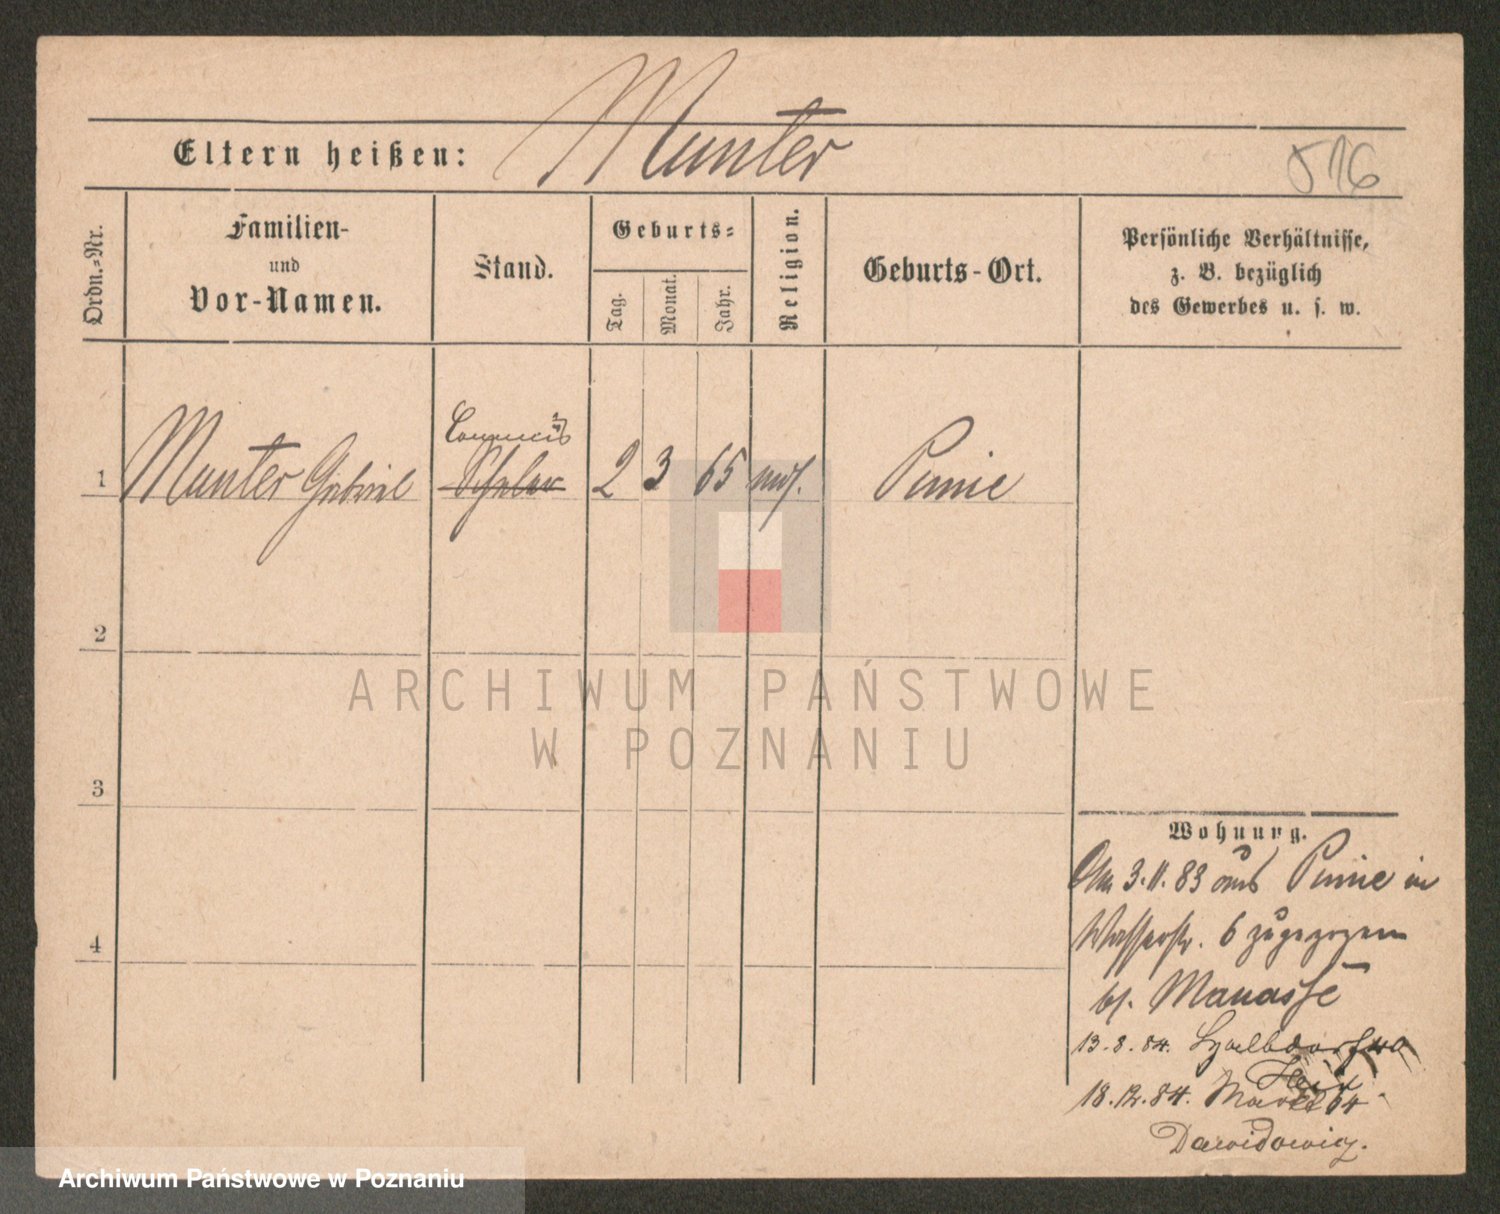 Munter
Eltern heißen:
516
Ordn.-Nr.
Familien-
und
Vor-Namen.
Stand.
Geburts-
Tag.
Monat.
Jahr.
Religion.
Geburts-Ort.
Persönliche Verhältnisse,
z. B. bezüglich
des Gewerbes u. s. w.
Commis
1 Munter Gabriel Schüler 2 3 65 mos. Pinne
2
ARCHIWUM PAŃSTWOWE
W POZNANIU
3
Wohnung.
Am 3.11.83 aus Pinne in
Wasserstr. 6 zugezogen
4
bei Manasse
13.8.84.
18.12.84. Markt 64
Dawidowicz.
Archiwum Państwowe w Poznaniu